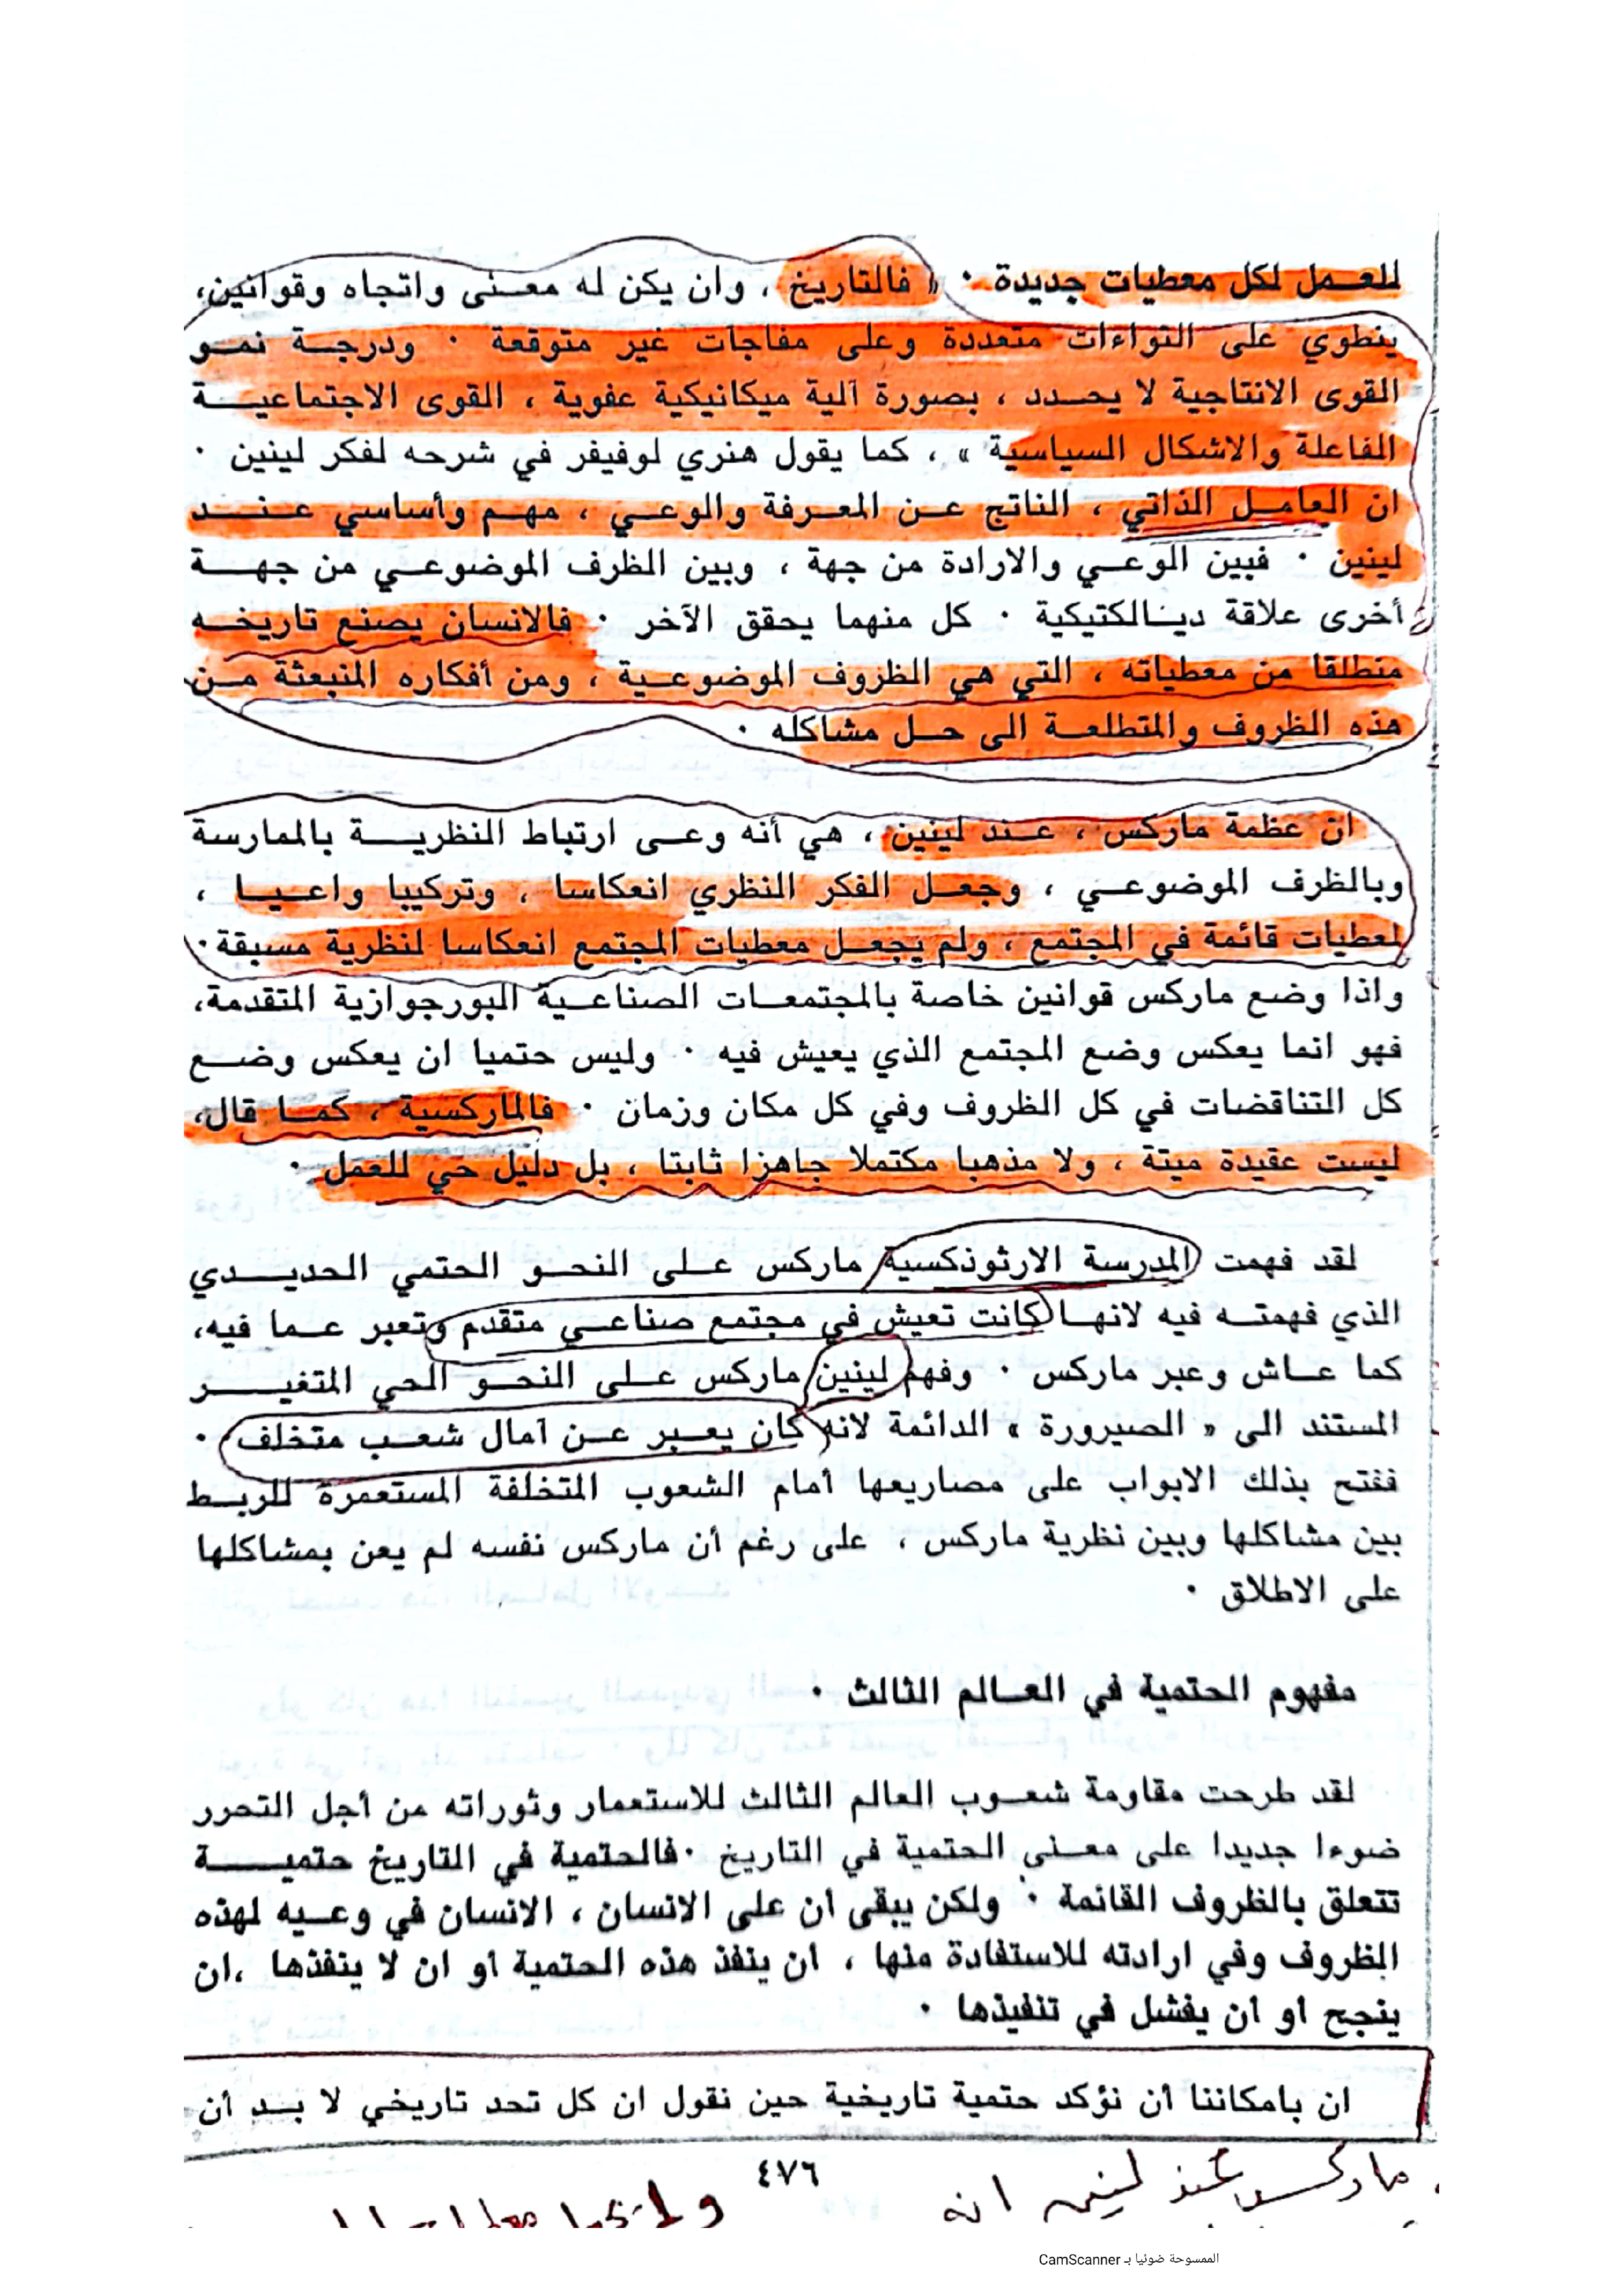 للعمل لكل معطيات جديدة . « فالتاريخ ، وان يكن له معنى واتجاه وقوانين،
ينطوي على التواءات متعددة وعلى مفاجآت غير متوقعة . ودرجة نمو
القوى الانتاجية لا يحدد ، بصورة آلية ميكانيكية عفوية ، القوى الاجتماعية
الفاعلة والاشكال السياسية » ، كما يقول هنري لوفيفر في شرحه لفكر لينين .
ان العامل الذاتي ، الناتج عن المعرفة والوعي ، مهم وأساسي عند
لينين . فبين الوعي والارادة من جهة ، وبين الظرف الموضوعي من جهة
أخرى علاقة ديالكتيكية . كل منهما يحقق الآخر . فالانسان يصنع تاريخه
منطلقا من معطياته ، التي هي الظروف الموضوعية ، ومن أفكاره المنبعثة من
هذه الظروف والمتطلعة الى حل مشاكله .
ان عظمة ماركس ، عند لينين ، هي أنه وعى ارتباط النظرية بالممارسة
وبالظرف الموضوعي ، وجعل الفكر النظري انعكاسا ، وتركيبا واعيا ،
لمعطيات قائمة في المجتمع ، ولم يجعل معطيات المجتمع انعكاسا لنظرية مسبقة .
واذا وضع ماركس قوانين خاصة بالمجتمعات الصناعية البورجوازية المتقدمة،
فهو انما يعكس وضع المجتمع الذي يعيش فيه . وليس حتميا ان يعكس وضع
كل التناقضات في كل الظروف وفي كل مكان وزمان . فالماركسية ، كما قال،
ليست عقيدة ميتة ، ولا مذهبا مكتملا جاهزا ثابتا ، بل دليل حي للعمل .
لقد فهمت المدرسة الارثوذكسية ماركس على النحو الحتمي الحديدي
الذي فهمته فيه لانها كانت تعيش في مجتمع صناعي متقدم وتعبر عما فيه،
كما عاش وعبر ماركس . وفهم لينين ماركس على النحو الحي المتغير
المستند الى « الصيرورة » الدائمة لانه كان يعبر عن آمال شعب متخلف .
ففتح بذلك الابواب على مصاريعها أمام الشعوب المتخلفة المستعمرة للربط
بين مشاكلها وبين نظرية ماركس ، على رغم أن ماركس نفسه لم يعن بمشاكلها
على الاطلاق .
مفهوم الحتمية في العالم الثالث .
لقد طرحت مقاومة شعوب العالم الثالث للاستعمار وثوراته من أجل التحرر
ضوءا جديدا على معنى الحتمية في التاريخ . فالحتمية في التاريخ حتمية
تتعلق بالظروف القائمة . ولكن يبقى ان على الانسان ، الانسان في وعيه لهذه
الظروف وفي ارادته للاستفادة منها ، ان ينفذ هذه الحتمية او ان لا ينفذها ،ان
ينجح او ان يفشل في تنفيذها .
ان بامكاننا أن نؤكد حتمية تاريخية حين نقول ان كل تحد تاريخي لا بد أن
٤٧٦
ماركس عند لينين انه
الممسوحة ضوئيا بـ CamScanner